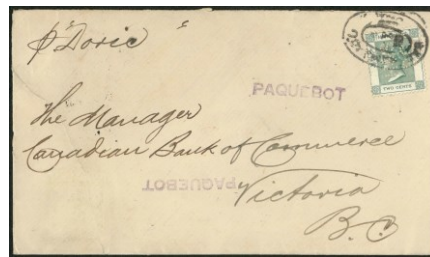 p "Doric"
PAQUEBOT
TWO CENTS
The Manager
Canadian Bank of Commerce
PAQUEBOT
Victoria
B.C